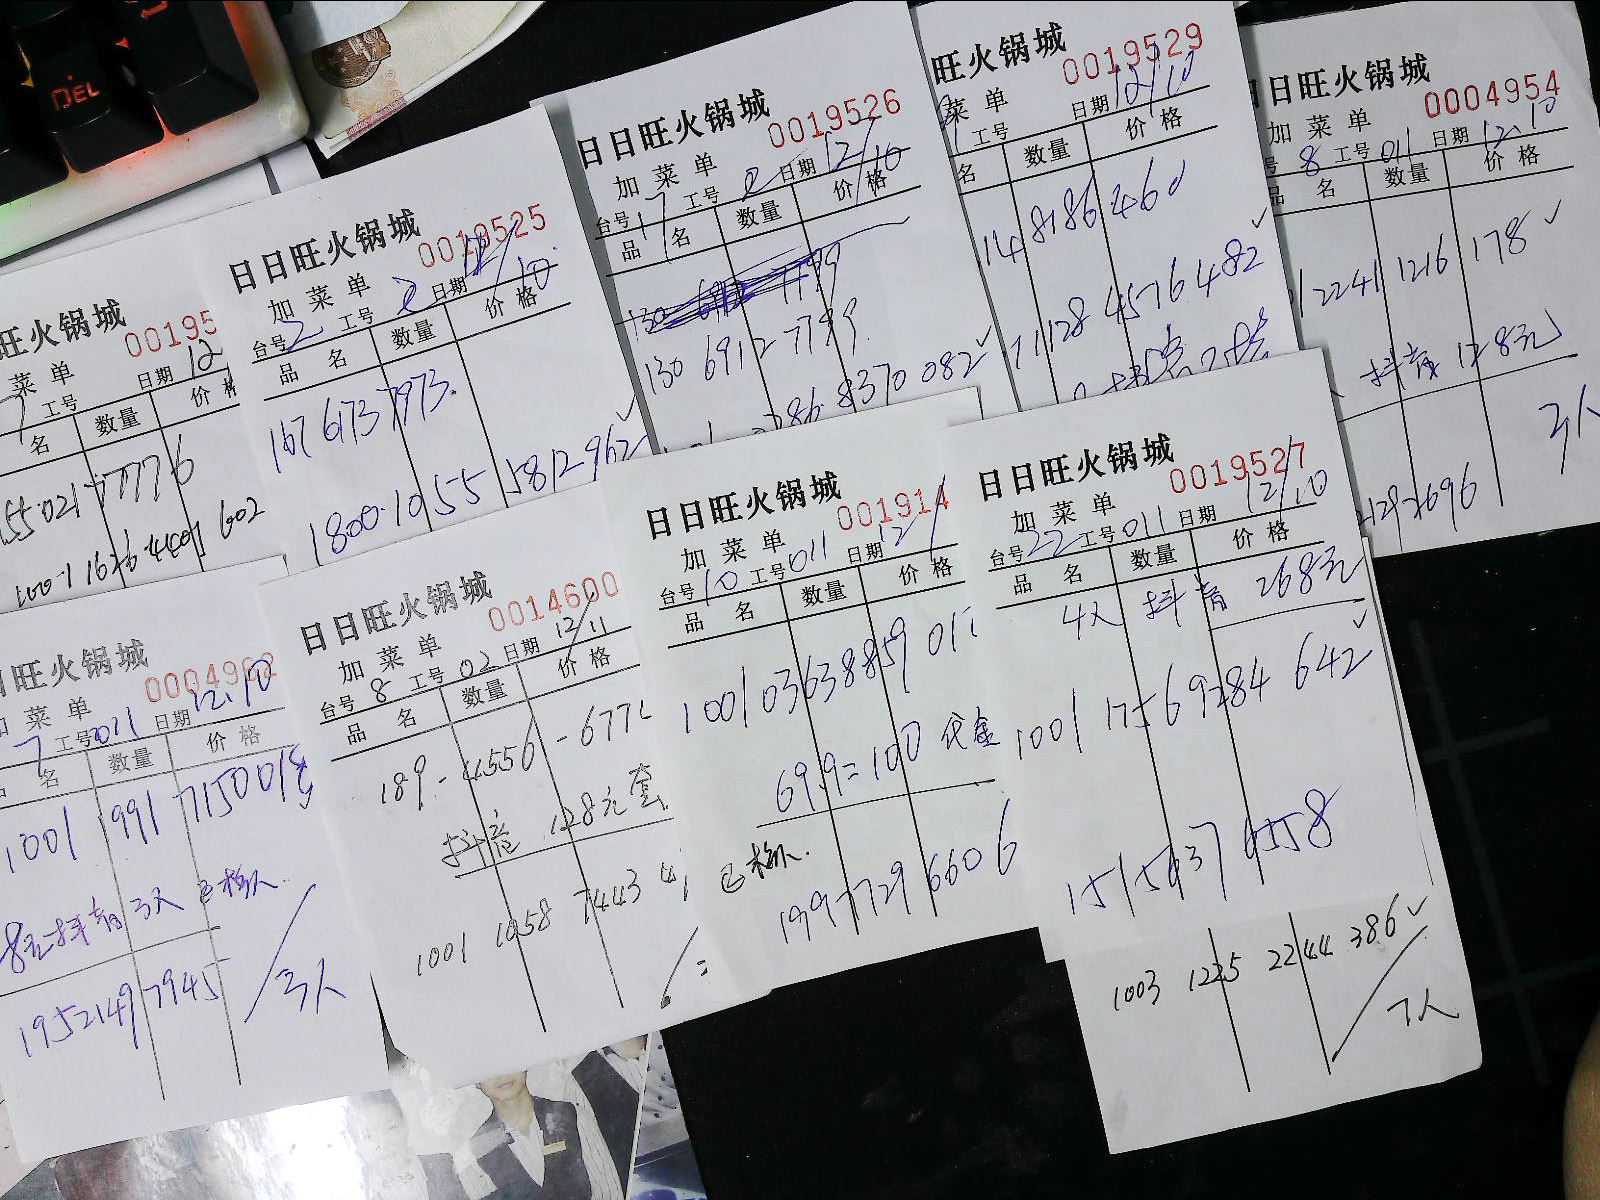 DEL
旺火锅城
0019529
菜单
日期 12/10
工号
名 数量 价格
14 8186 460
71128 4576 482
日日旺火锅城
0004954
加菜单
8 工号 011 日期 12.10
品名 数量 价格
2241 1216 178
抖音 128元
日日旺火锅城
0019526
加菜单
台号 17 工号 2 日期 12/10
品名 数量 价格
130 6912 7799
86 8370 082
日日旺火锅城
0019525
加菜单
台号 2 工号 2 日期 12/10
品名 数量 价格
167 6173 7973
1800 1055 5812 962
旺火锅城
00195
菜单
日期 12
7 工号
名 数量 价格
55 021 77776
1001 1626 4401 602
日日旺火锅城
0019527
加菜单
台号 22 工号 011 日期 12/10
品名 数量 价格
4人 抖音 268元
1001 1756 9284 642
151 5637 6558
日日旺火锅城
001914
加菜单
台号 10 工号 011 日期 12/
品名 数量 价格
1001 0363 8859 011
69.9=100 代金
已核认
199 7729 6606
日日旺火锅城
0014600
加菜单
台号 8 工号 02 日期 12/11
品名 数量 价格
189-4556-677
抖音 128元套
1001 1058 7443
日旺火锅城
加菜单
7 工号 011 日期 12.10
名 数量 价格
1001 991 7150 018
8元抖音 3人 已核认
195 2149 7945
3人
1003 1225 2244 386